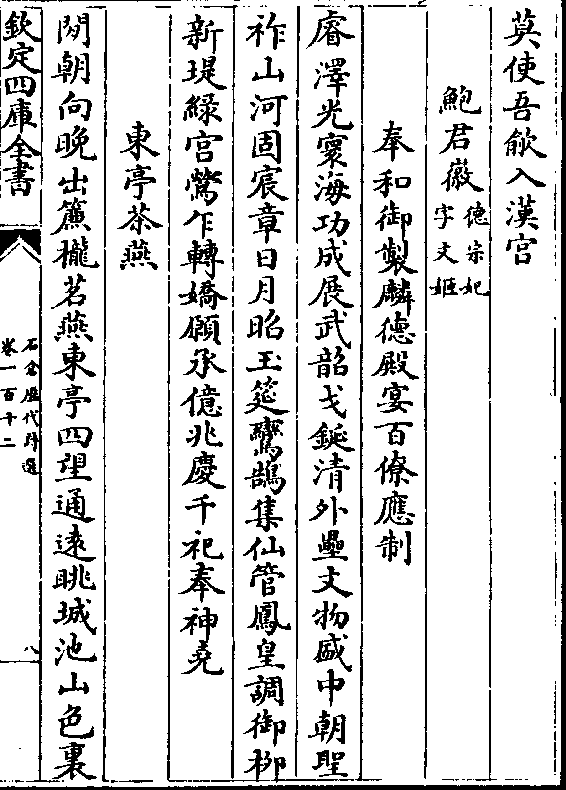 莫使吾歈入漢宮
鮑君徽德宗妃字文姬
奉和御製麟德殿宴百僚應制
睿澤光寰海功成展武韶戈鋋清外壘文物盛中朝聖
祚山河固宸章日月昭玉筵鸞鵠集仙管鳳皇調御栁
新堤綠宮鶯乍轉嬌願承億兆慶千祀奉神堯
東亭茶燕
閒朝向晚出簾櫳茗燕東亭四望通逺眺城池山色裏
欽定四庫全書
石倉歷代詩選
卷一百十二
八